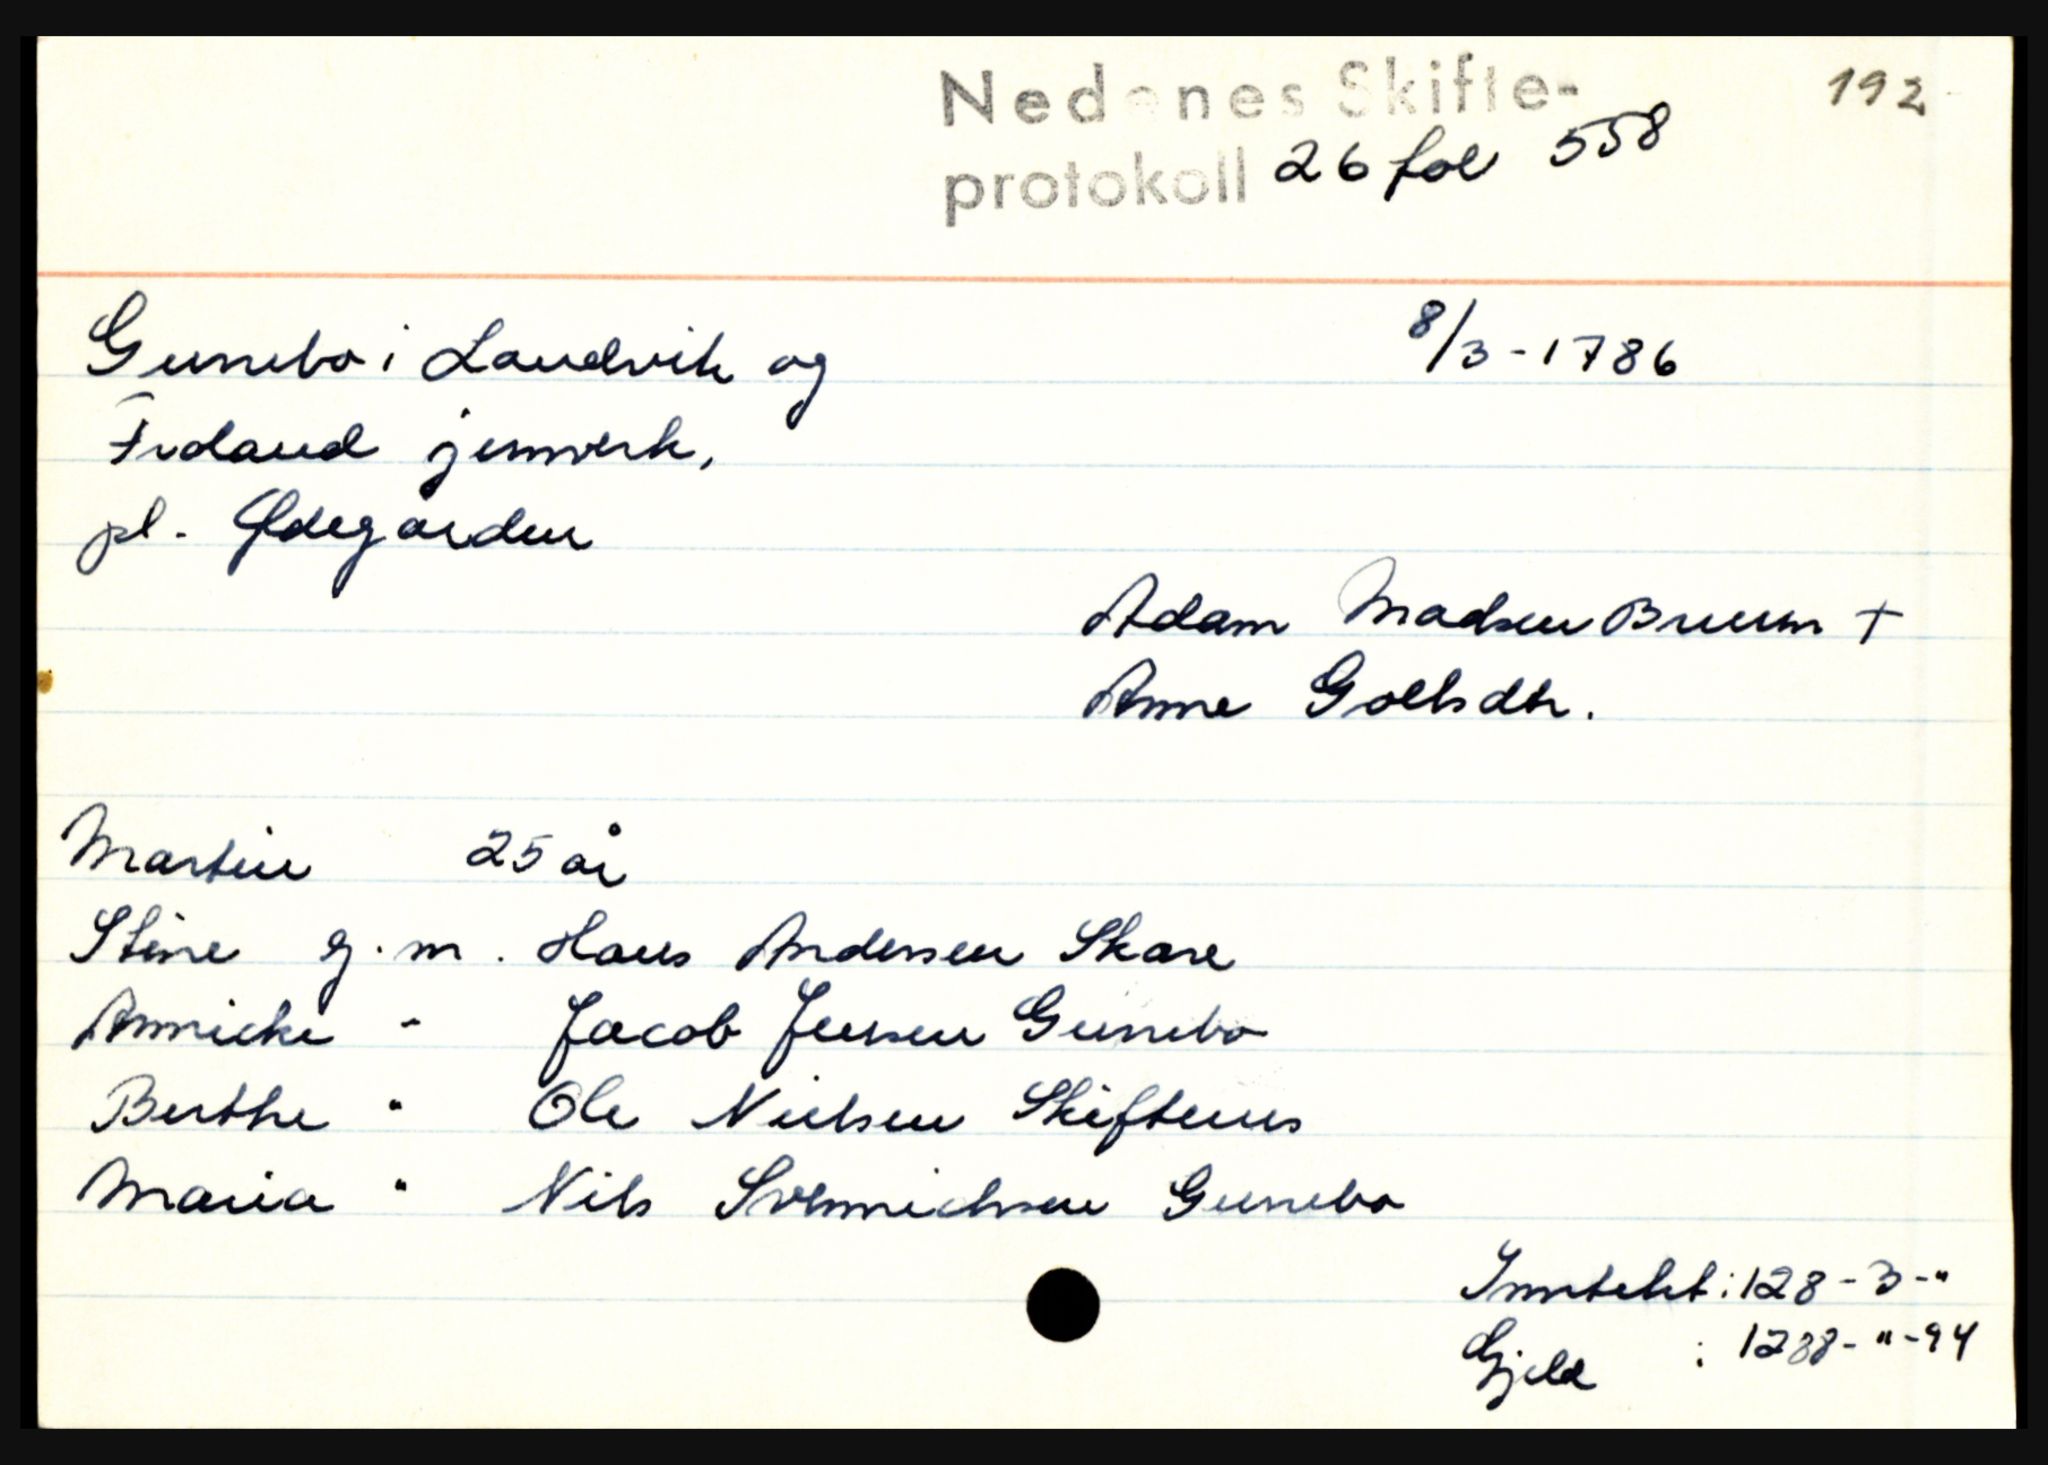 Nedenes Skifte-
192
protokoll 26 fol 558
Gunebo i Landvik og
8/3-1786
Froland jernverk,
pl. Ødegården
Adam Madsen Bruun +
Anne dtr.
Martin 25 år
Stine g.m. Hans Andersen Skare
Annicke - Jacob Jensen Gunebo
Berthe " Ole Nielsen Skiftenes
Maria " Nils Gunebo
Inntekt: 128-3-"
Gjeld : -"-94